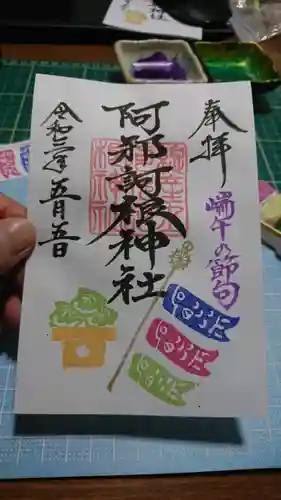 奉拝
端午の節句
阿邪訶根神社
令和三年五月五日